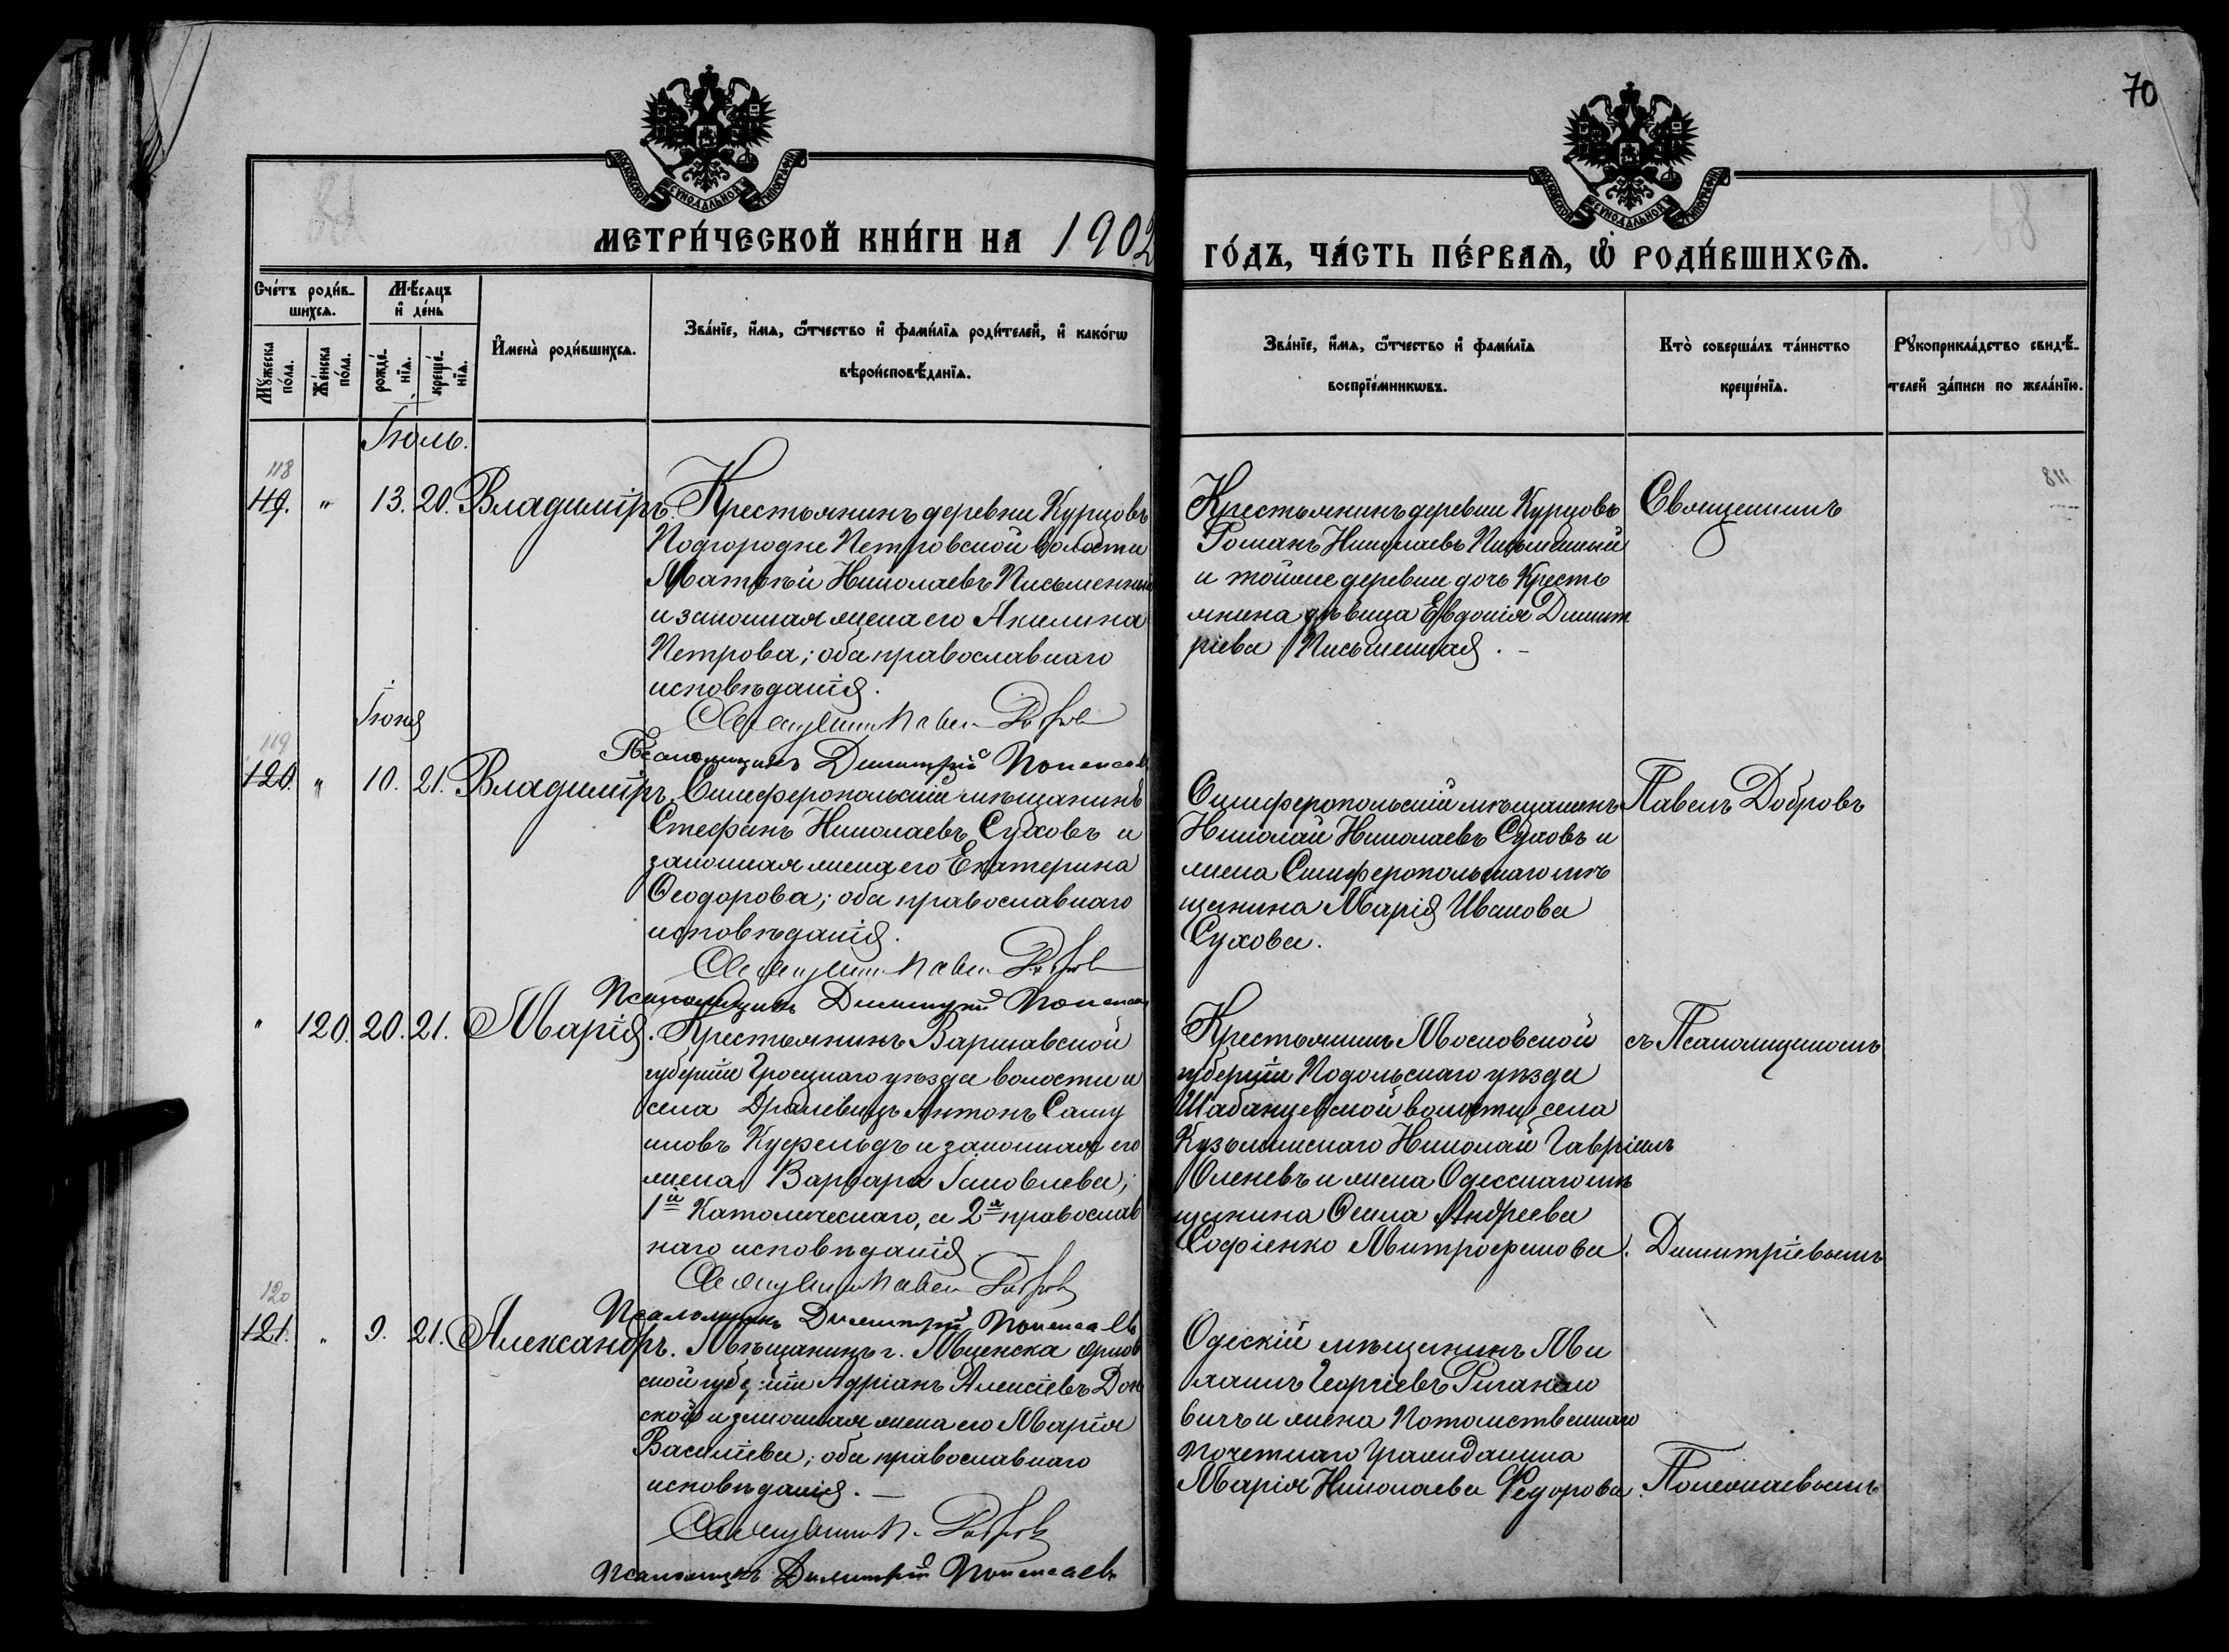 70
МОСКОВСКОЙ СѴНОДАЛЬНОЙ ТИПОГРАФІИ
МОСКОВСКОЙ СѴНОДАЛЬНОЙ ТИПОГРАФІИ
МЕТРИ́ЧЕСКОЙ КНИ́ГИ НА 1902
ГО́ДЪ, ЧА́СТЬ ПЕ́РВАѦ, Ѽ РОДИ́ВШИХСѦ.
Счетъ роди́в-
шихсѧ.
Мꙋжеска по́ла.
Же́нска по́ла.
Мѣсѧцъ и де́нь
рожде́-
нїѧ.
креще́-
нїѧ.
Имена̀ роди́вшихсѧ.
Зва́нїе, и́мѧ, ѻ́тчество и фами́лїѧ роди́телей, и како́гѡ
вѣроисповѣ́данїѧ.
Зва́нїе, и́мѧ, ѻ́тчество и фами́лїѧ
воспрїе́мникѡвъ.
Кто̀ соверша́лъ та́инство
креще́нїѧ.
Рꙋкоприкла́дство свидѣ́-
телей за́писи по жела́нїю.
Іюль.
118
119. " 13. 20. Владиміръ. Крестьянинъ деревни Курцовъ
Подгородне Петровской волости
Матвѣй Николаевъ Письменный
и законная жена его Акилина
Петрова; оба православнаго
исповѣданія.
Священникъ Павелъ Добровъ
Псаломщикъ Димитрій
Крестьянинъ деревни Курцовъ
Романъ Николаевъ Письменный
и тойже деревни дочь Кресть
янина дѣвица Евдокія Димит
ріева Письменная. -
Священникъ
118
Іюня
119
120. " 10. 21. Владиміръ. Симферопольскій мѣщанинъ
Стефанъ Николаевъ Суховъ и
законная жена его Екатерина
Ѳеодорова; оба православнаго
исповѣданія.
Священникъ Павелъ Добровъ
Псаломщикъ Димитрій
Симферопольскій мѣщанинъ
Николай Николаевъ Суховъ и
жена Симферопольскаго мѣ
щанина Марія Иванова
Сухова.
Павелъ Добровъ
" 120. 20. 21. Марія. Крестьянинъ Варшавской
губерніи Гроецкаго уѣзда волости и
села Антонъ Саму
иловъ Куфельдъ и законная его
жена Варвара Іаковлева;
1й Католическаго, а 2я православ
наго исповѣданія
Священникъ Павелъ Добровъ
Псаломщикъ Димитрій
Крестьянинъ Московской
губерніи Подольскаго уѣзда
Шабанцевской волости, села
Кузьминскаго Николай Гавріилъ
Оленевъ и жена Одесскаго мѣ
щанина Андреева
Софіенко Митрофанова.
съ Псаломщикомъ
Димитріевымъ
120
121. " 9. 21. Александръ. Мѣщанинъ г. Мценска Орлов
ской губерніи Адріанъ Алексіевъ Дон
ской и законная жена его Марія
Василіева; оба православнаго
исповѣданія. —
Священникъ П. Добровъ
Псаломщикъ Димитрій
Одескій мѣщанинъ Ми
Георгіевъ
вичъ и жена Потомственнаго
почетнаго Гражданина
Марія Николаева Федорова.